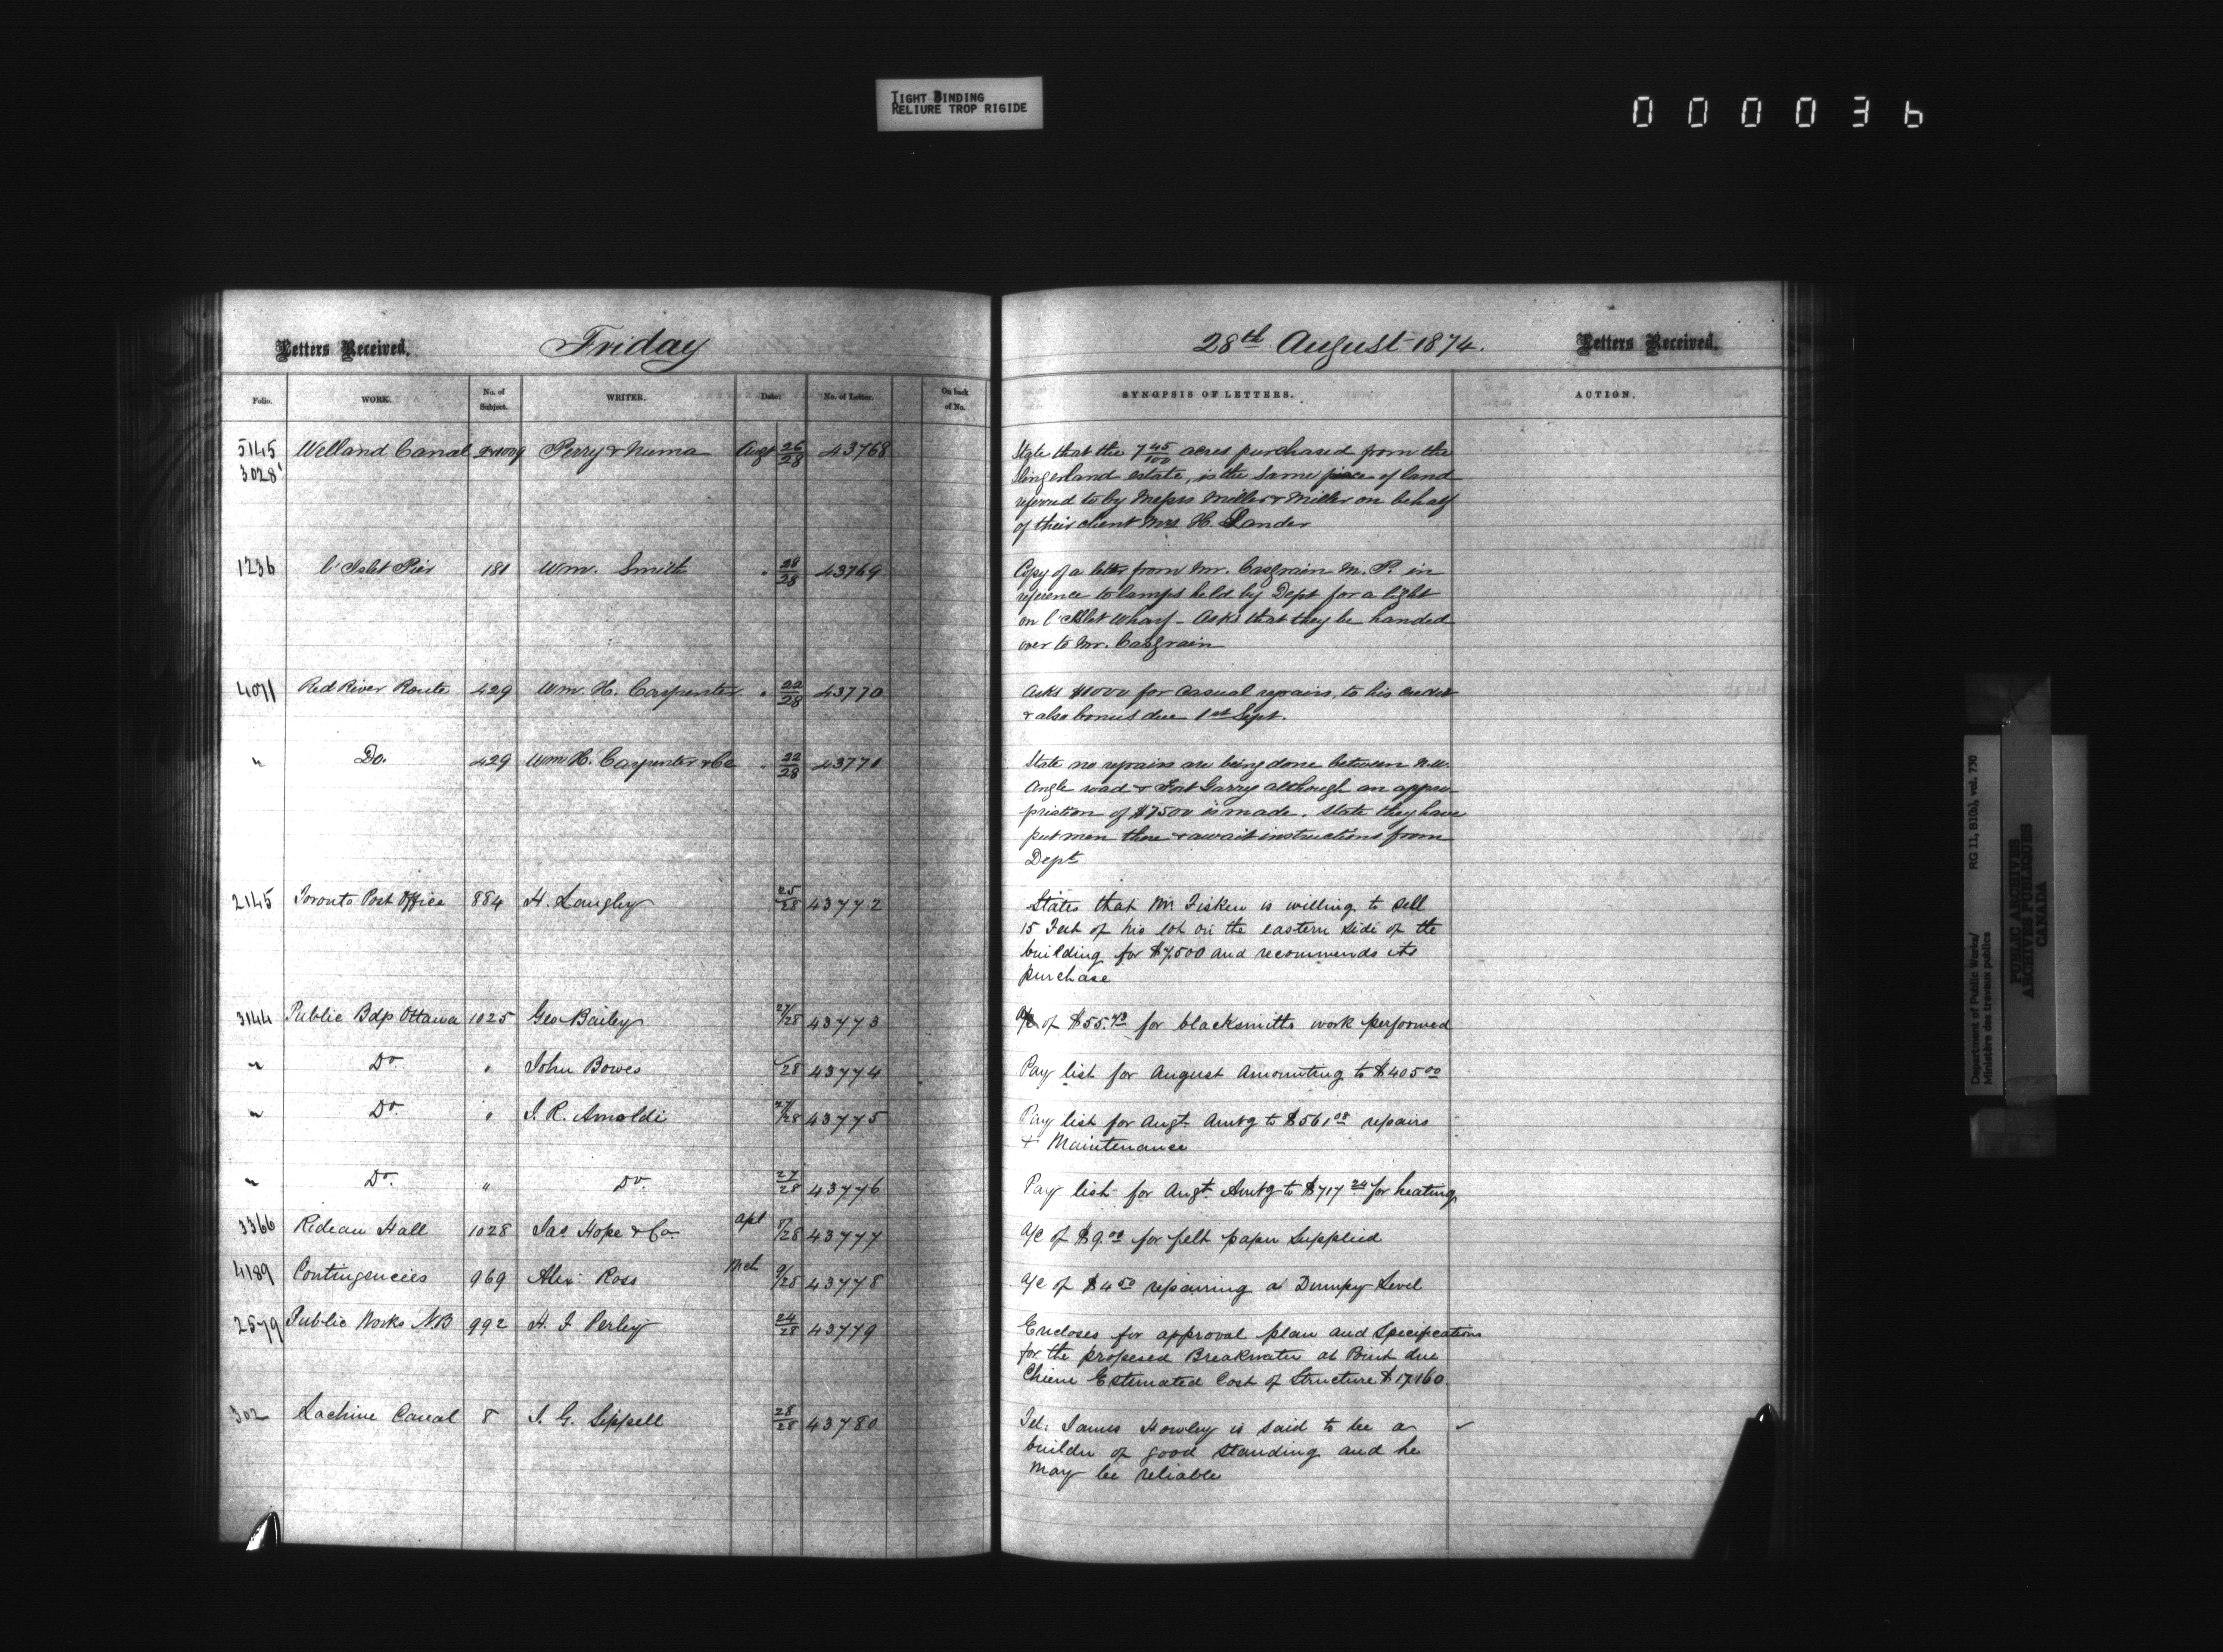 TIGHT BINDING
RELIURE TROP RIGIDE
000036
Letters Received. Friday
Folio. WORK. No. of Subject. WRITER. Date. No. of Letter. On back of No.
5145 Welland Canal Perry & Numa Augt 26/28 43768
3028
1236 l'Islet Pier 181 Wm. Smith " 28/28 43769
4071 Red River Route 429 Wm. H. Carpenter " 22/28 43770
" Do. 429 Wm H. Carpenter & Co " 22/28 43771
2145 Toronto Post Office 884 H. Langley 25/28 43772
3144 Public Bdgs Ottawa 1025 Geo Bailey 27/28 43773
" Do. " John Bowes /28 43774
" Do. " J. R. Arnoldi 27/28 43775
" Do. " Do. 27/28 43776
3366 Rideau Hall 1028 Jas Hope & Co apl 8/28 43777
4189 Contingencies 969 Alex: Ross Mch 9/28 43778
2579 Public Works N.B 992 H. F. Perley 24/28 43779
302 Lachine Canal 8 J. G. Sippell 28/28 43780
28th August 1874. Letters Received.
SYNOPSIS OF LETTERS. ACTION.
State that the 7 45/100 acres purchased from the
Slingerland estate, is the same piece of land
referred to by Messrs Miller & Miller on behalf
of their client Mrs H. Lander
Copy of a letter from Mr. Casgrain M. P. in
reference to lamps held by Dept for a light
on l'Islet Wharf - Asks that they be handed
over to Mr. Casgrain
Asks $1000 for casual repairs, to his credit
& also bonus due 1st Sept.
State no repairs are being done between N.W.
Angle road & Fort Garry although an appro-
priation of $7500 is made. State they have
put men there & await instructions from
Dept
States that Mr Fisken is willing to sell
15 Feet of his lot on the eastern side of the
building for $7,500 and recommends its
purchase
A/c of $55.70 for blacksmiths work performed
Pay list for August Amounting to $405 00
Pay list for Augt. Amtg to $561 08 repairs
& Maintenance
Pay list for Augt. Amtg to $717 24 for heating
A/c of $9.00 for felt paper Supplied
A/c of $4 50 repairing a Dumpy Level
Encloses for approval plan and Specifications
for the proposed Breakwater at Point due
Chiene Estimated Cost of Structure $17,160
Tel: James Howley is said to be a
builder of good standing and he
may be reliable
Department of Public Works/ RG 11, B1(b), vol. 730
Ministère des travaux publics
PUBLIC ARCHIVES
ARCHIVES PUBLIQUES
CANADA